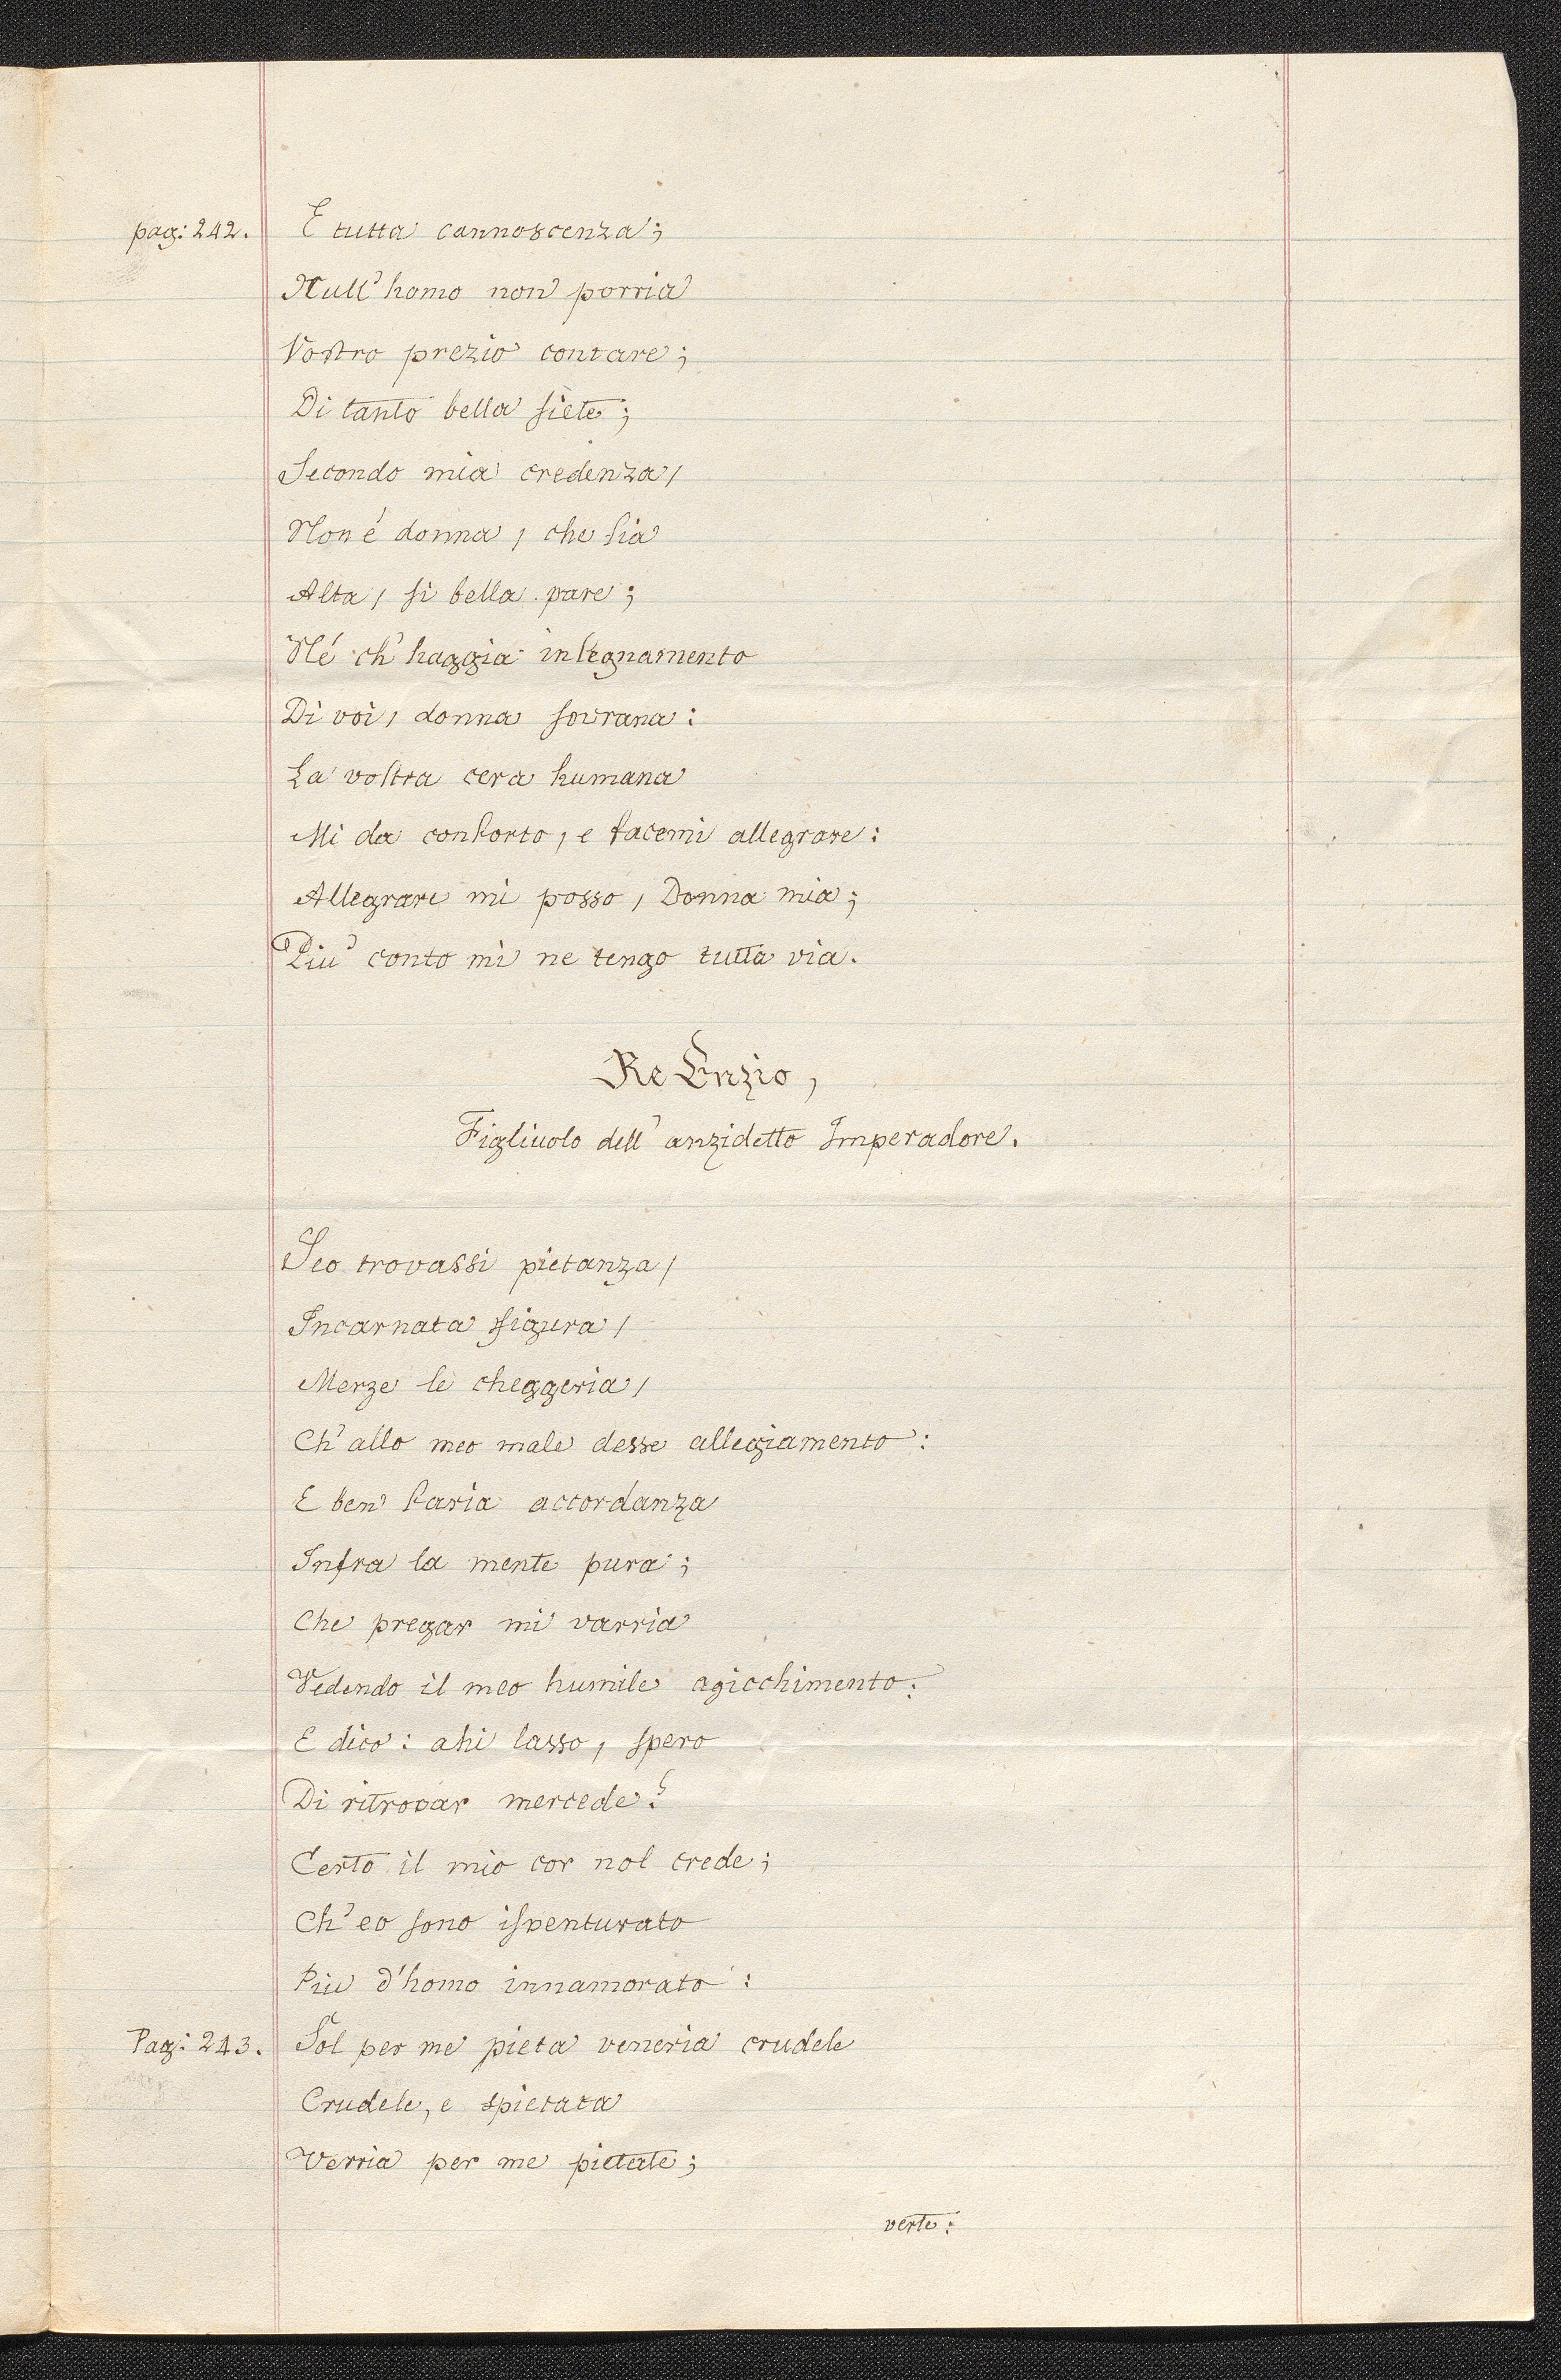 pag: 242. E tutta cannoscenza;
Null' homo non porria
Vostro prezio contare;
Di tanto bella siete;
Secondo mia credenza,
Non é donna, che sia
Alta, si bella pare;
Né ch' haggia insegnamento
Di voi, donna sovrana:
La vostra cera humana
Mi da conforto, e facemi allegrare:
Allegrare mi posso, Donna mia;
Piu' conto mi ne tengo tutta via.
Re Enzio,
Figliuolo dell' anzidetto Imperadore.
Seo trovassi pietanza,
Incarnata figura,
Merze le cheggeria,
Ch' allo meo male desse allegiamento:
E ben faria accordanza
Infra la mente pura;
Che pregar mi varria
Vedendo il meo humile agicchimento:
E dico: ahi lasso, spero
Di ritrovar mercede?
Certo il mio cor nol crede;
Ch' eo sono isventurato
Piu d'homo innamorato:
Pag: 243. Sol per me pieta veneria crudele
Crudele, e spietata
Verria per me pietate;
verte: